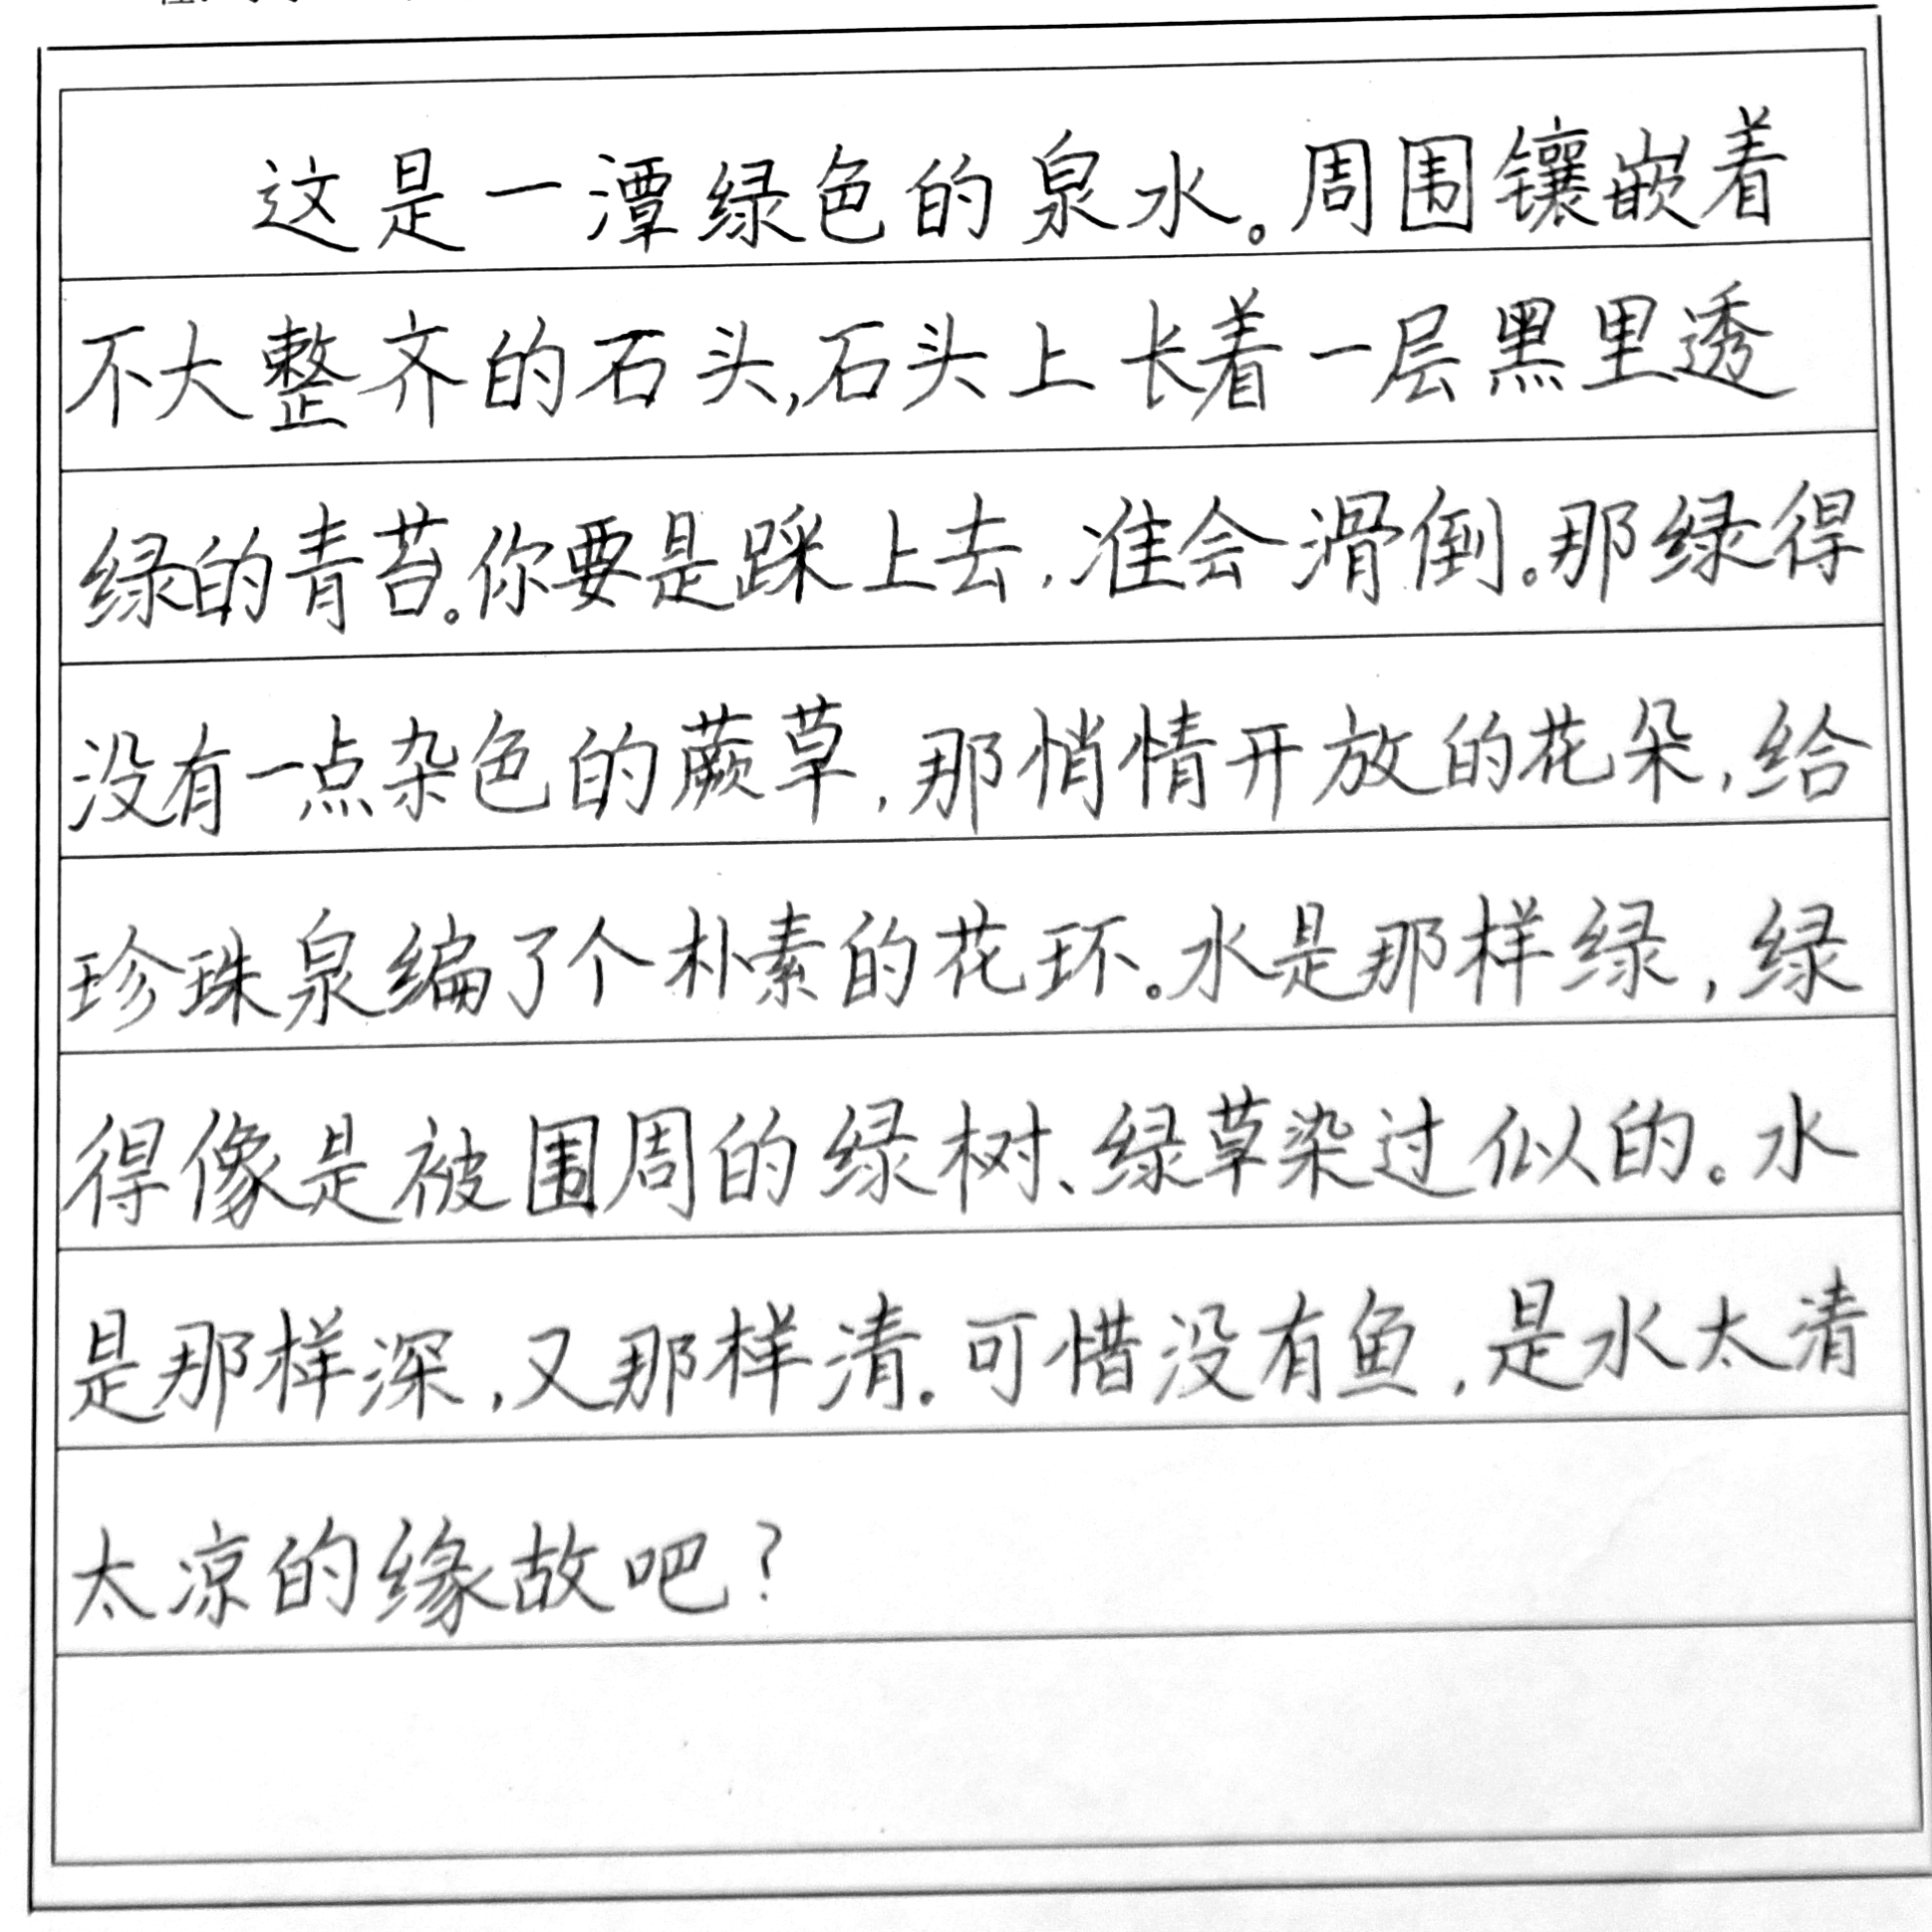 这是一潭绿色的泉水。周围镶嵌着
不大整齐的石头,石头上长着一层黑里透
绿的青苔。你要是踩上去,准会滑倒。那绿得
没有一点杂色的蕨草,那悄情开放的花朵,给
珍珠泉编了个朴素的花环。水是那样绿,绿
得像是被围周的绿树、绿草染过似的。水
是那样深,又那样清。可惜没有鱼,是水太清
太凉的缘故吧?